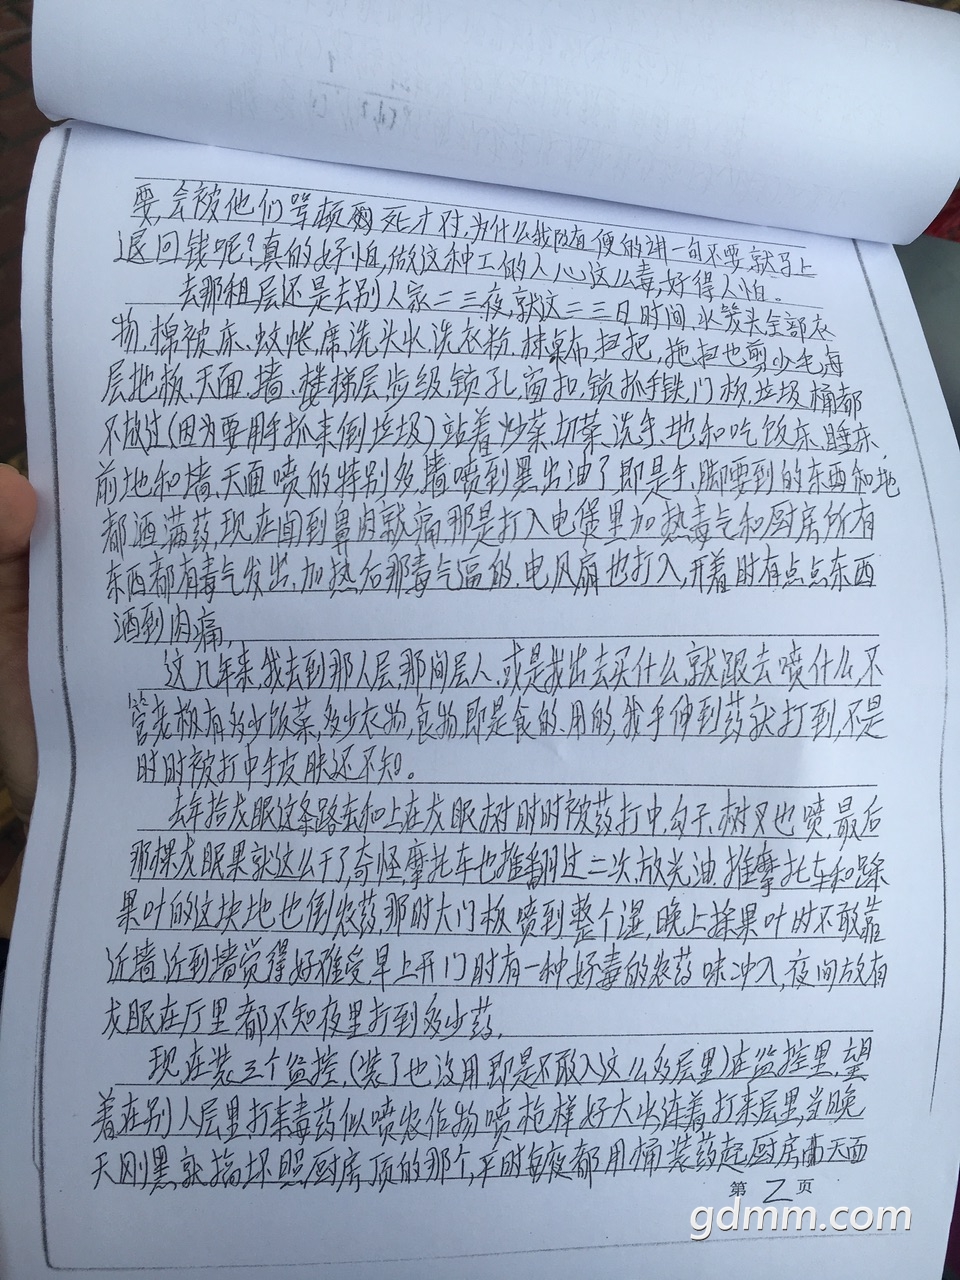 要,会被他们骂顿死才对,为什么我随便的讲一句不要就马上
退回钱呢?真的好怕,做这种工的人心这么毒,好得人怕。
去那租层还是去别人家二三夜,就这二三日时间,水龙头全部衣
物,棉被床、蚊帐,席,洗头水,洗衣粉,抹桌布,扫把,拖把也剪少毛,每
层地板、天面、墙、楼梯层步级,锁孔,窗扣,锁抓手铁,门板,垃圾桶都
不放过(因为要用手抓来倒垃圾)站着炒菜、切菜、洗手、地和吃饭床、睡床、
前地和墙、天面喷的特别多,墙喷到黑出油了即是手、脚要到的东西和地
都洒满药,现在闻到鼻肉就痛,那是打入电煲里加热毒气和厨房所有
东西都有毒气发出,加热后那毒气温的,电风扇也打入,开着时有点点东西
洒到肉痛,
这几年来,我去到那人层,那间层人,或是我出去买什么,就跟去喷什么,不
管老板有多少饭菜,多少衣物,食物,即是食的、用的,我手伸到药就打到,不是
时时被打中手皮肤还不知。
去年拾龙眼这条路东和上在龙眼树时时被药打中,勾子、树叉也喷,最后
那棵龙眼果就这么干了,奇怪,摩托车也推翻过二次,放光油,推摩托车和除
果叶的这块地也倒农药,那时大门板喷到整个湿,晚上採果叶时不敢靠
近墙,近到墙觉得好难受,早上开门时有一种好毒的农药味冲入,夜间放有
龙眼在厅里都不知夜里打到多少药,
现在装三个监控,(装了也没用即是不敢入这么多层里)在监控里,望
着在别人层里打来毒药似喷农作物喷枪样好大出连着打来层里,当晚
天刚黑就搞坏照厨房顶的那个,平时每夜都用桶装药起厨房高天面
第2页
gdmm.com